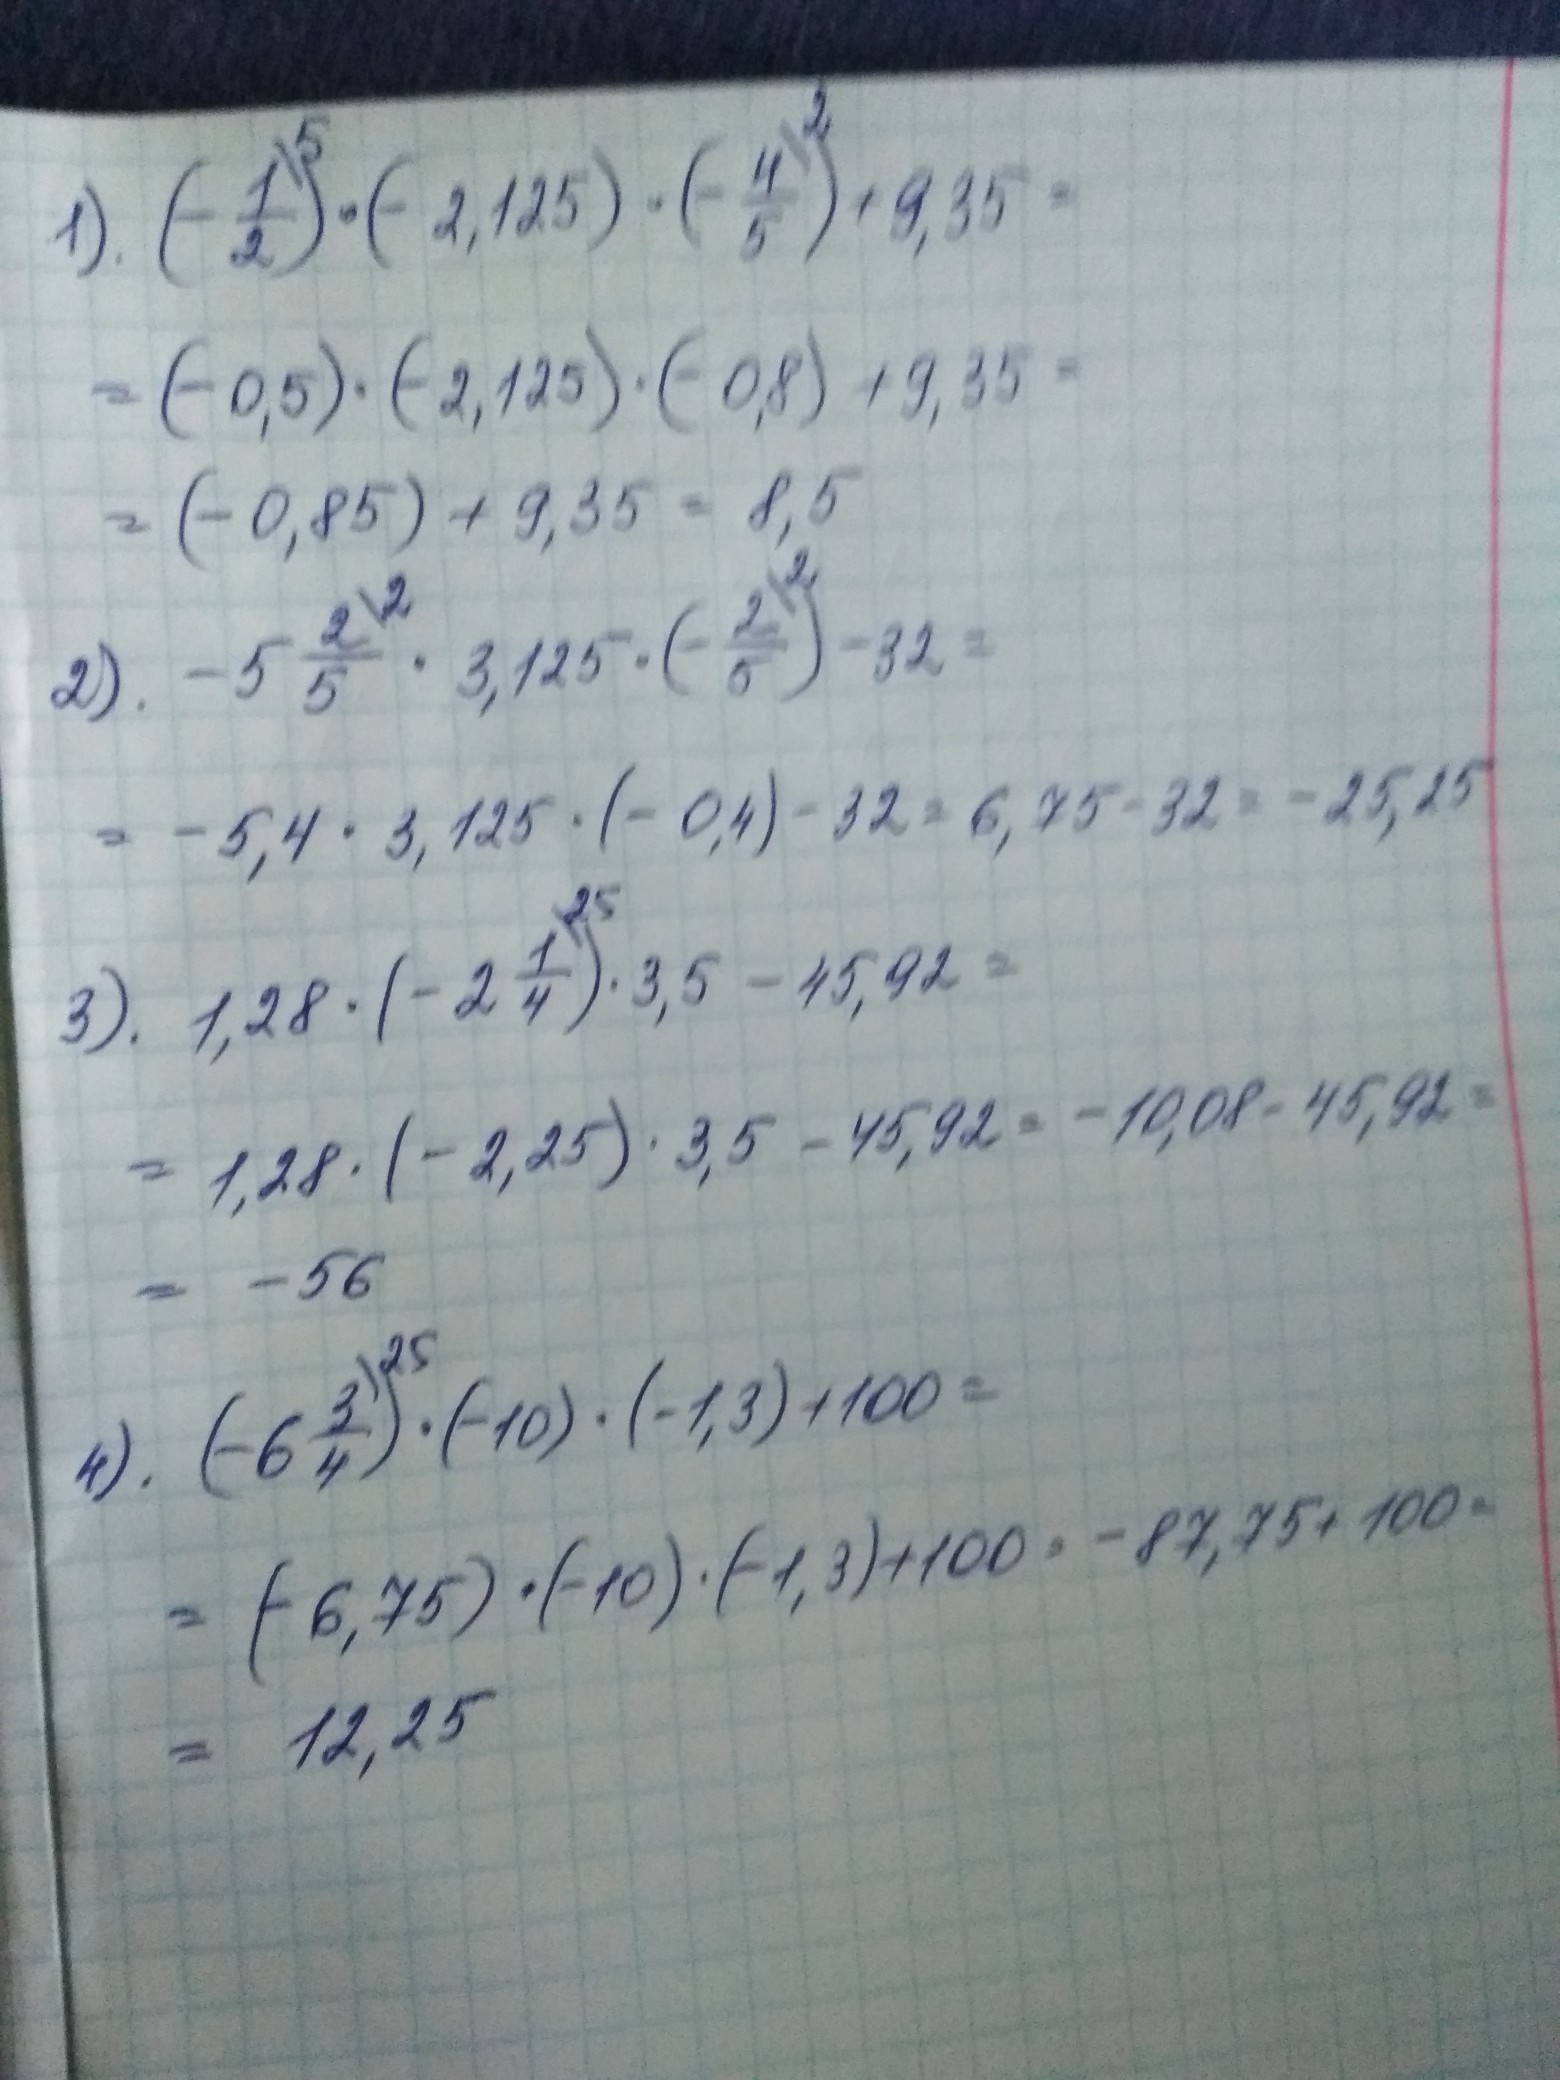 1). (-1/2\5)·(-2,125)·(-4/5\2)+9,35=
=(-0,5)·(-2,125)·(-0,8)+9,35=
=(-0,85)+9,35=8,5
2). -5 2/5\2 · 3,125·(-2/5\2)-32=
=-5,4·3,125·(-0,4)-32=6,75-32=-25,25
3). 1,28·(-2 1/4\25)·3,5-45,92=
=1,28·(-2,25)·3,5-45,92=-10,08-45,92=
=-56
4). (-6 3/4\25)·(-10)·(-1,3)+100=
=(-6,75)·(-10)·(-1,3)+100=-87,75+100=
=12,25